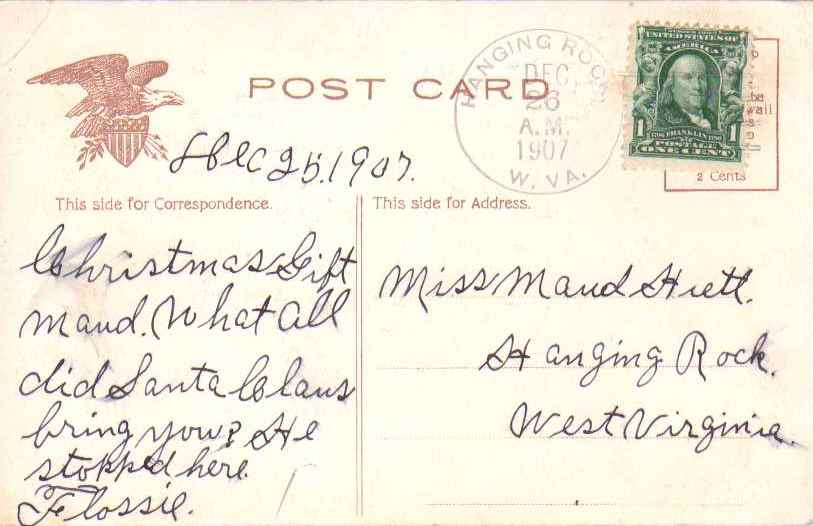 POST CARD
HANGING ROCK
DEC
26
A.M.
1907
W. VA.
UNITED STATES OF
AMERICA
1 FRANKLIN 1
POSTAGE
ONE CENT
be
2 Cents
Dec 25, 1907.
This side for Correspondence.
This side for Address.
Christmas Gift
Maud. What all
did Santa Claus
bring you? He
stopped here
Flossie.
Miss Maud Hiett.
Hanging Rock.
West Virginia.